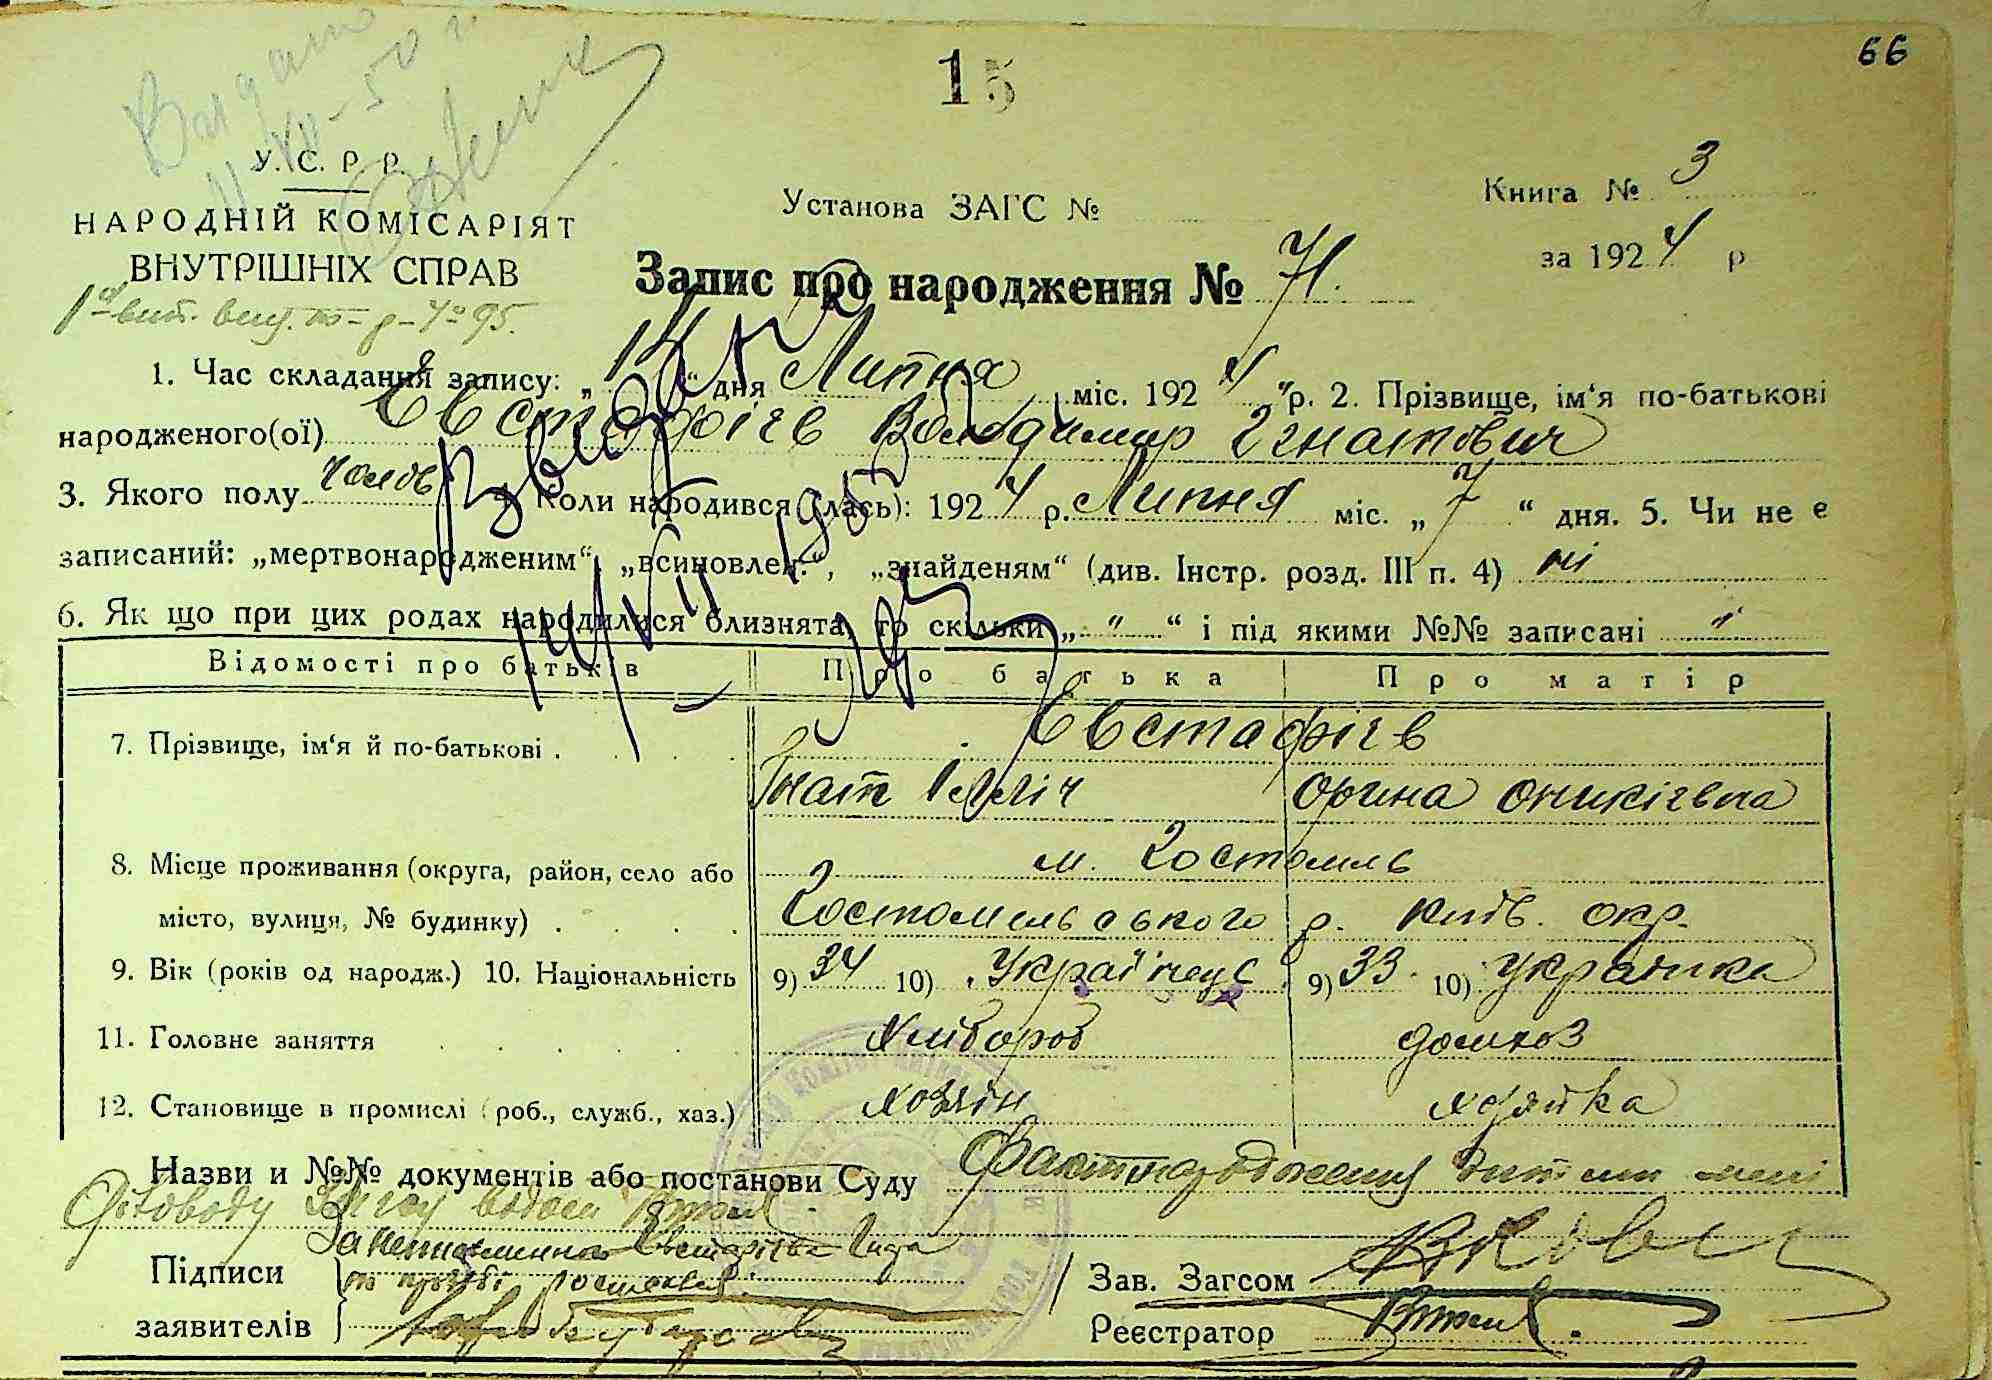 66
15
У. С. Р. Р.
НАРОДНІЙ КОМІСАРІЯТ
ВНУТРІШНІХ СПРАВ
Установа ЗАГС №
Книга № 3
за 1924 р
Запис про народження № 71.
1. Час складання запису: „14“ дня Липня міс. 1924 р. 2. Прізвище, ім‘я по-батькові
народженого(ої) Евстафієв Володимир Ігнатович
3. Якого полу чолов Коли народився (лась): 1924 р. Липня міс. „7“ дня. 5. Чи не є
записаний: „мертвонародженим“, „всиновлен.“, „знайденям“ (див. Інстр. розд. III п. 4) ні
6. Як що при цих родах народилися близнята, то скільки „ " “ і під якими №№ записані "
Відомості про батьків Про батька Про матір
7. Прізвище, ім‘я й по-батькові . Евстафієв
Гнат Ілліч Орина Оникієвна
8. Місце проживання (округа, район, село або м. Гостомль
місто, вулиця, № будинку) . Гостомельського р. Київ. окр.
9. Вік (років од народж.) 10. Національність 9) 34 10) Українець 9) 33 10) Українка
11. Головне заняття Хлібороб домхоз
12. Становище в промислі (роб., служб., хаз.) хозяїн хозяйка
Назви и №№ документів або постанови Суду Факт народження дитини мені
Діловоду Загсу відом
Підписи
заявителів
За неписьменного Евстафієва Гната
по просьбі
Зав. Загсом
Реєстратор
Выдан